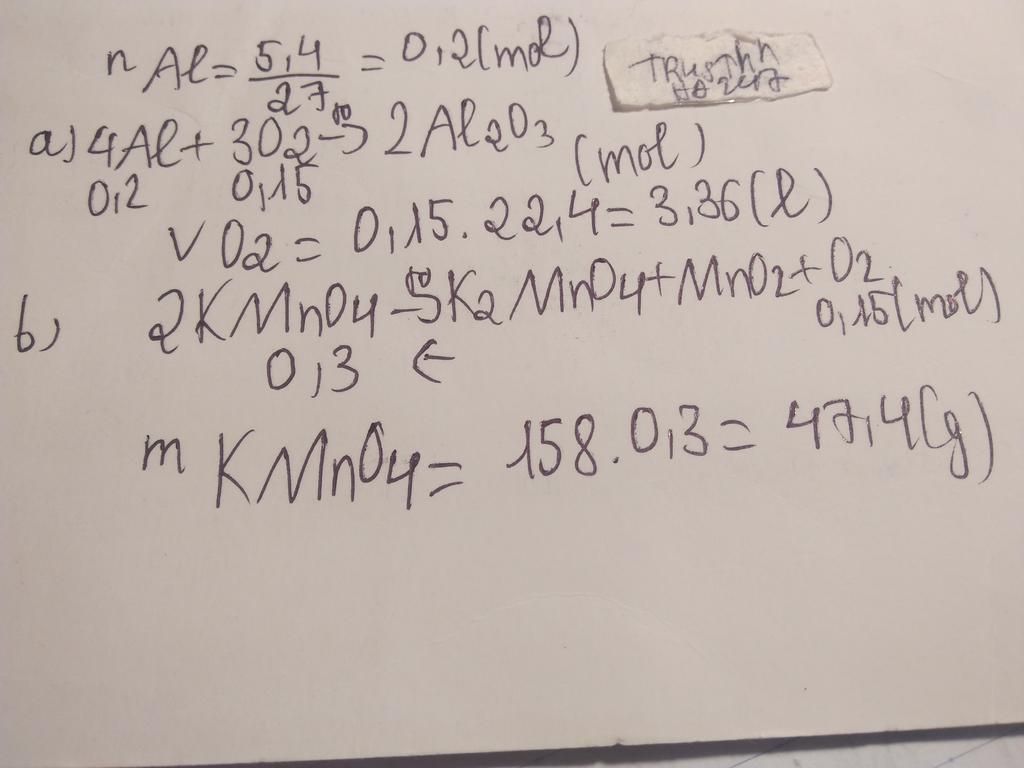 n Al = 5,4 / 27 = 0,2 (mol)
a) 4Al + 3O2 t0→ 2Al2O3
0,2 0,15 (mol)
VO2 = 0,15.22,4 = 3,36 (l)
b) 2KMnO4 t0→ K2MnO4 + MnO2 + O2
0,3 ← 0,15 (mol)
m KMnO4 = 158.0,3 = 47,4 (g)